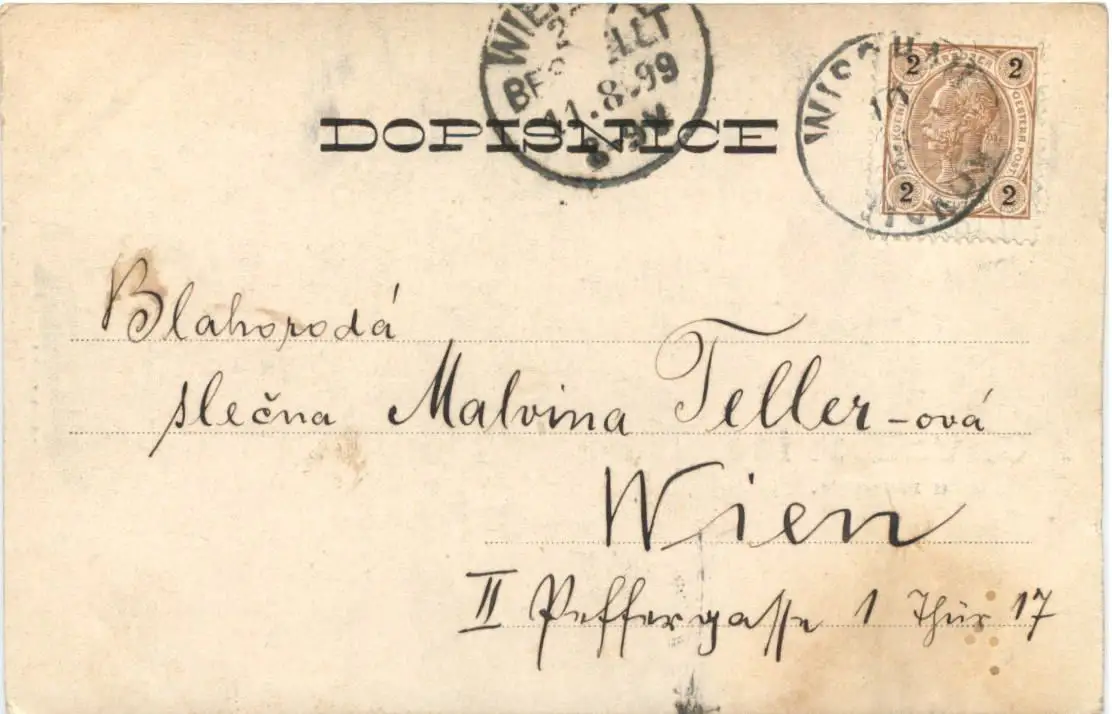 WIEN
BESTELLT
11.8.99
DOPISNICE
WISCHAU
10
VYŠKOV
2 2
2 2
Blahorodá
slečna Malvina Teller-ová
Wien
II Peffergasse 1 Thür 17